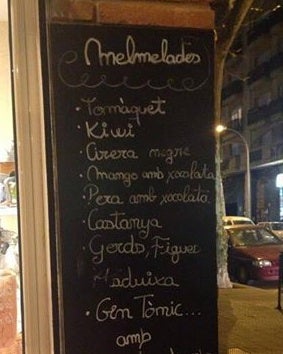 Melmelades
· Tomàquet
· Kiwi
Cirera negre
· Mango amb xocolata
· Pera amb xocolata
· Castanya
· Gerds, Figues
Maduixa
· Gin Tònic...
amb